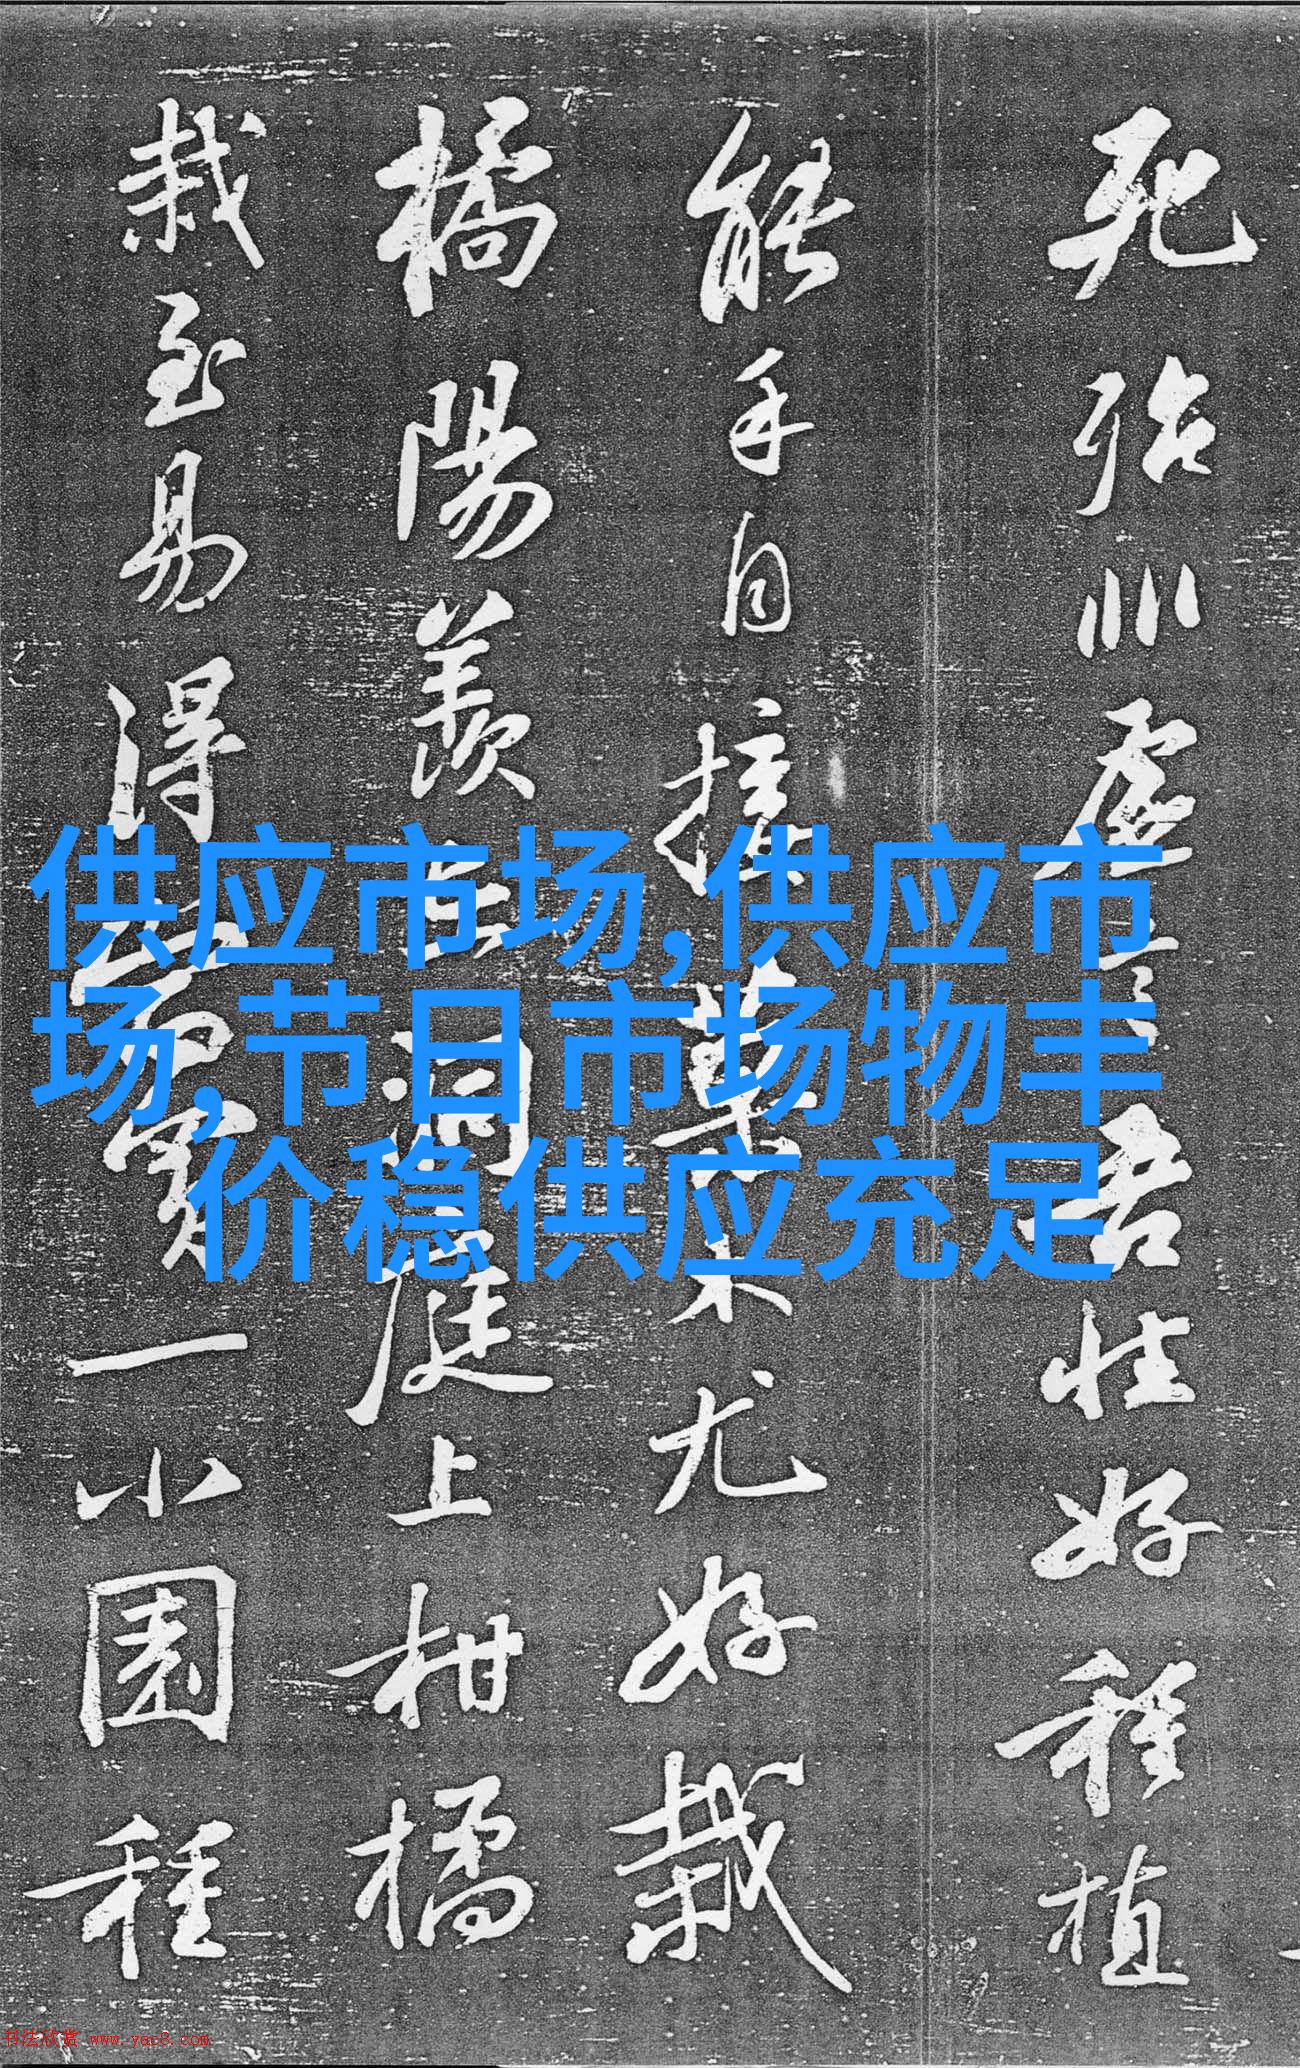 死殆非虛言吾性好種植
能手自接果木尤好栽
橘陽羨在洞庭上柑橘
栽至易得當買一小園種
供应市场,供应市
场,节日市场物丰
价稳供应充足
书法欣赏 www.yac8.com